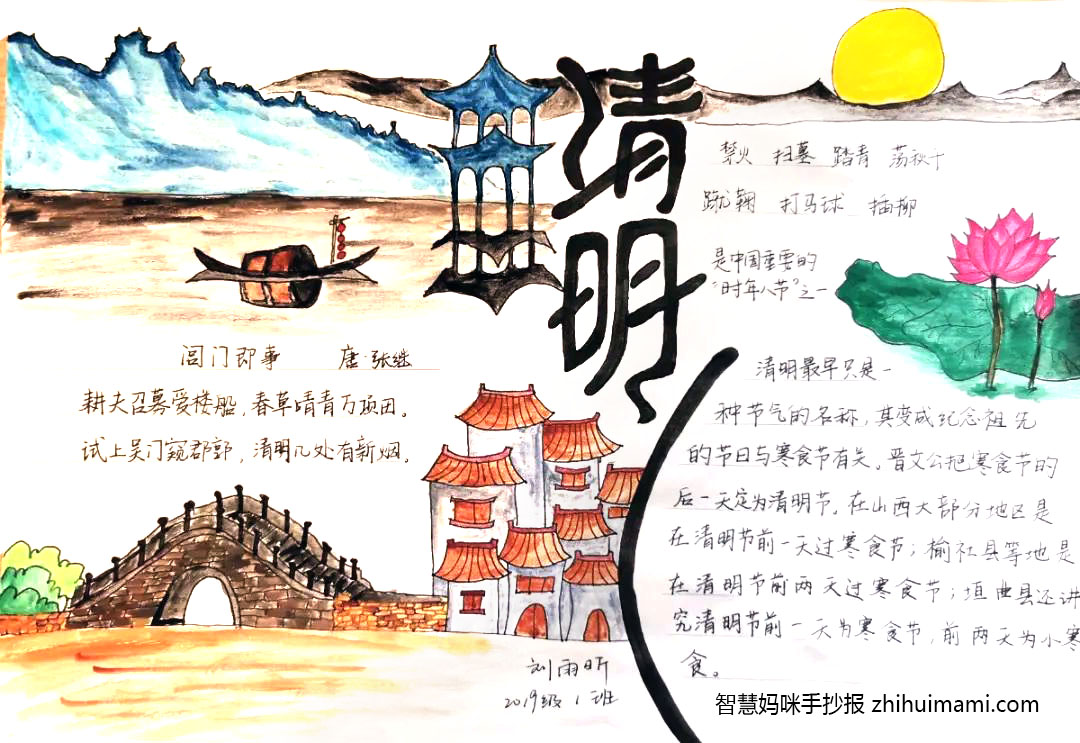 清明
禁火 扫墓 踏青 荡秋千
蹴鞠 打马球 插柳
是中国重要的
“时年八节”之一
阊门即事 唐·张继
耕夫召募爱楼船，春草青青万顷田。
试上吴门窥郡郭，清明几处有新烟。
清明最早只是一
种节气的名称，其变成纪念祖先
的节日与寒食节有关。晋文公把寒食节的
后一天定为清明节。在山西大部分地区是
在清明节前一天过寒食节；榆社县等地是
在清明节前两天过寒食节；垣曲县还讲
究清明节前一天为寒食节，前两天为小寒
食。
刘雨昕
2019级1班
智慧妈咪手抄报 zhihuimami.com